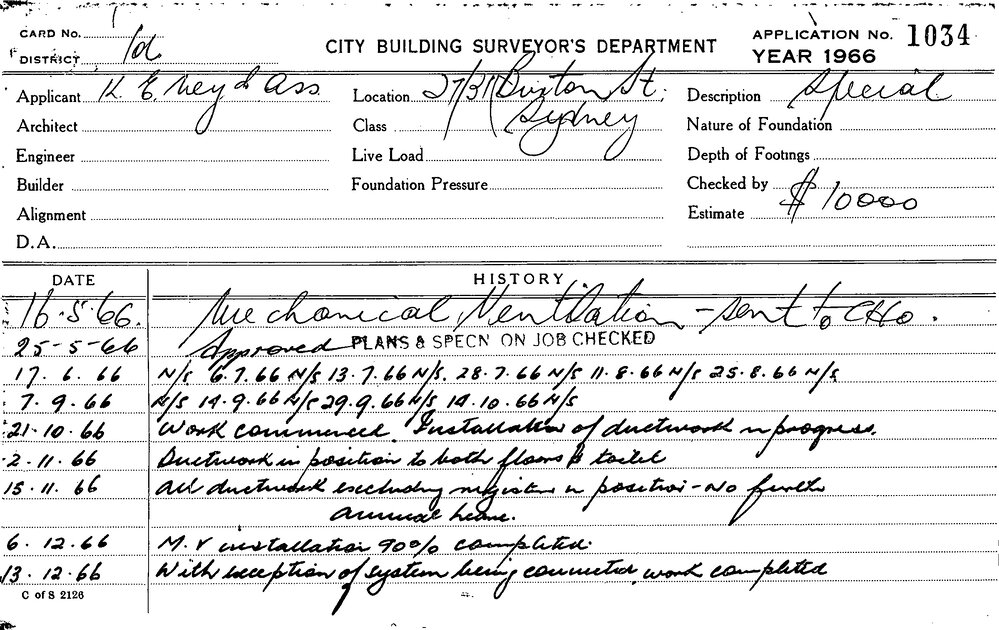 CARD No.
DISTRICT 1d
CITY BUILDING SURVEYOR'S DEPARTMENT
APPLICATION No. 1034
YEAR 1966
Applicant K. E. Ney & Ass
Location 27/31 Burton St.
Sydney
Description Special
Architect
Class
Nature of Foundation
Engineer
Live Load
Depth of Footings
Builder
Foundation Pressure
Checked by
Alignment
Estimate $ 10000
D.A.
DATE HISTORY
16.5.66. Mechanical Ventilation - sent to CHO.
25-5-66 Approved PLANS & SPECN ON JOB CHECKED
17.6.66 N/S 6.7.66 N/S 13.7.66 N/S. 28.7.66 N/S 11.8.66 N/S 25.8.66 N/S
7.9.66 N/S 14.9.66 N/S 29.9.66 N/S 14.10.66 N/S
21.10.66 Work commenced. Installation of ductwork in progress.
2.11.66 Ductwork in position to both floors & toilet
15.11.66 All ductwork excluding registers in position - No further
annual leave.
6.12.66 M.V installation 90% completed.
13.12.66 With exception of system being connected, work completed
C of S 2126